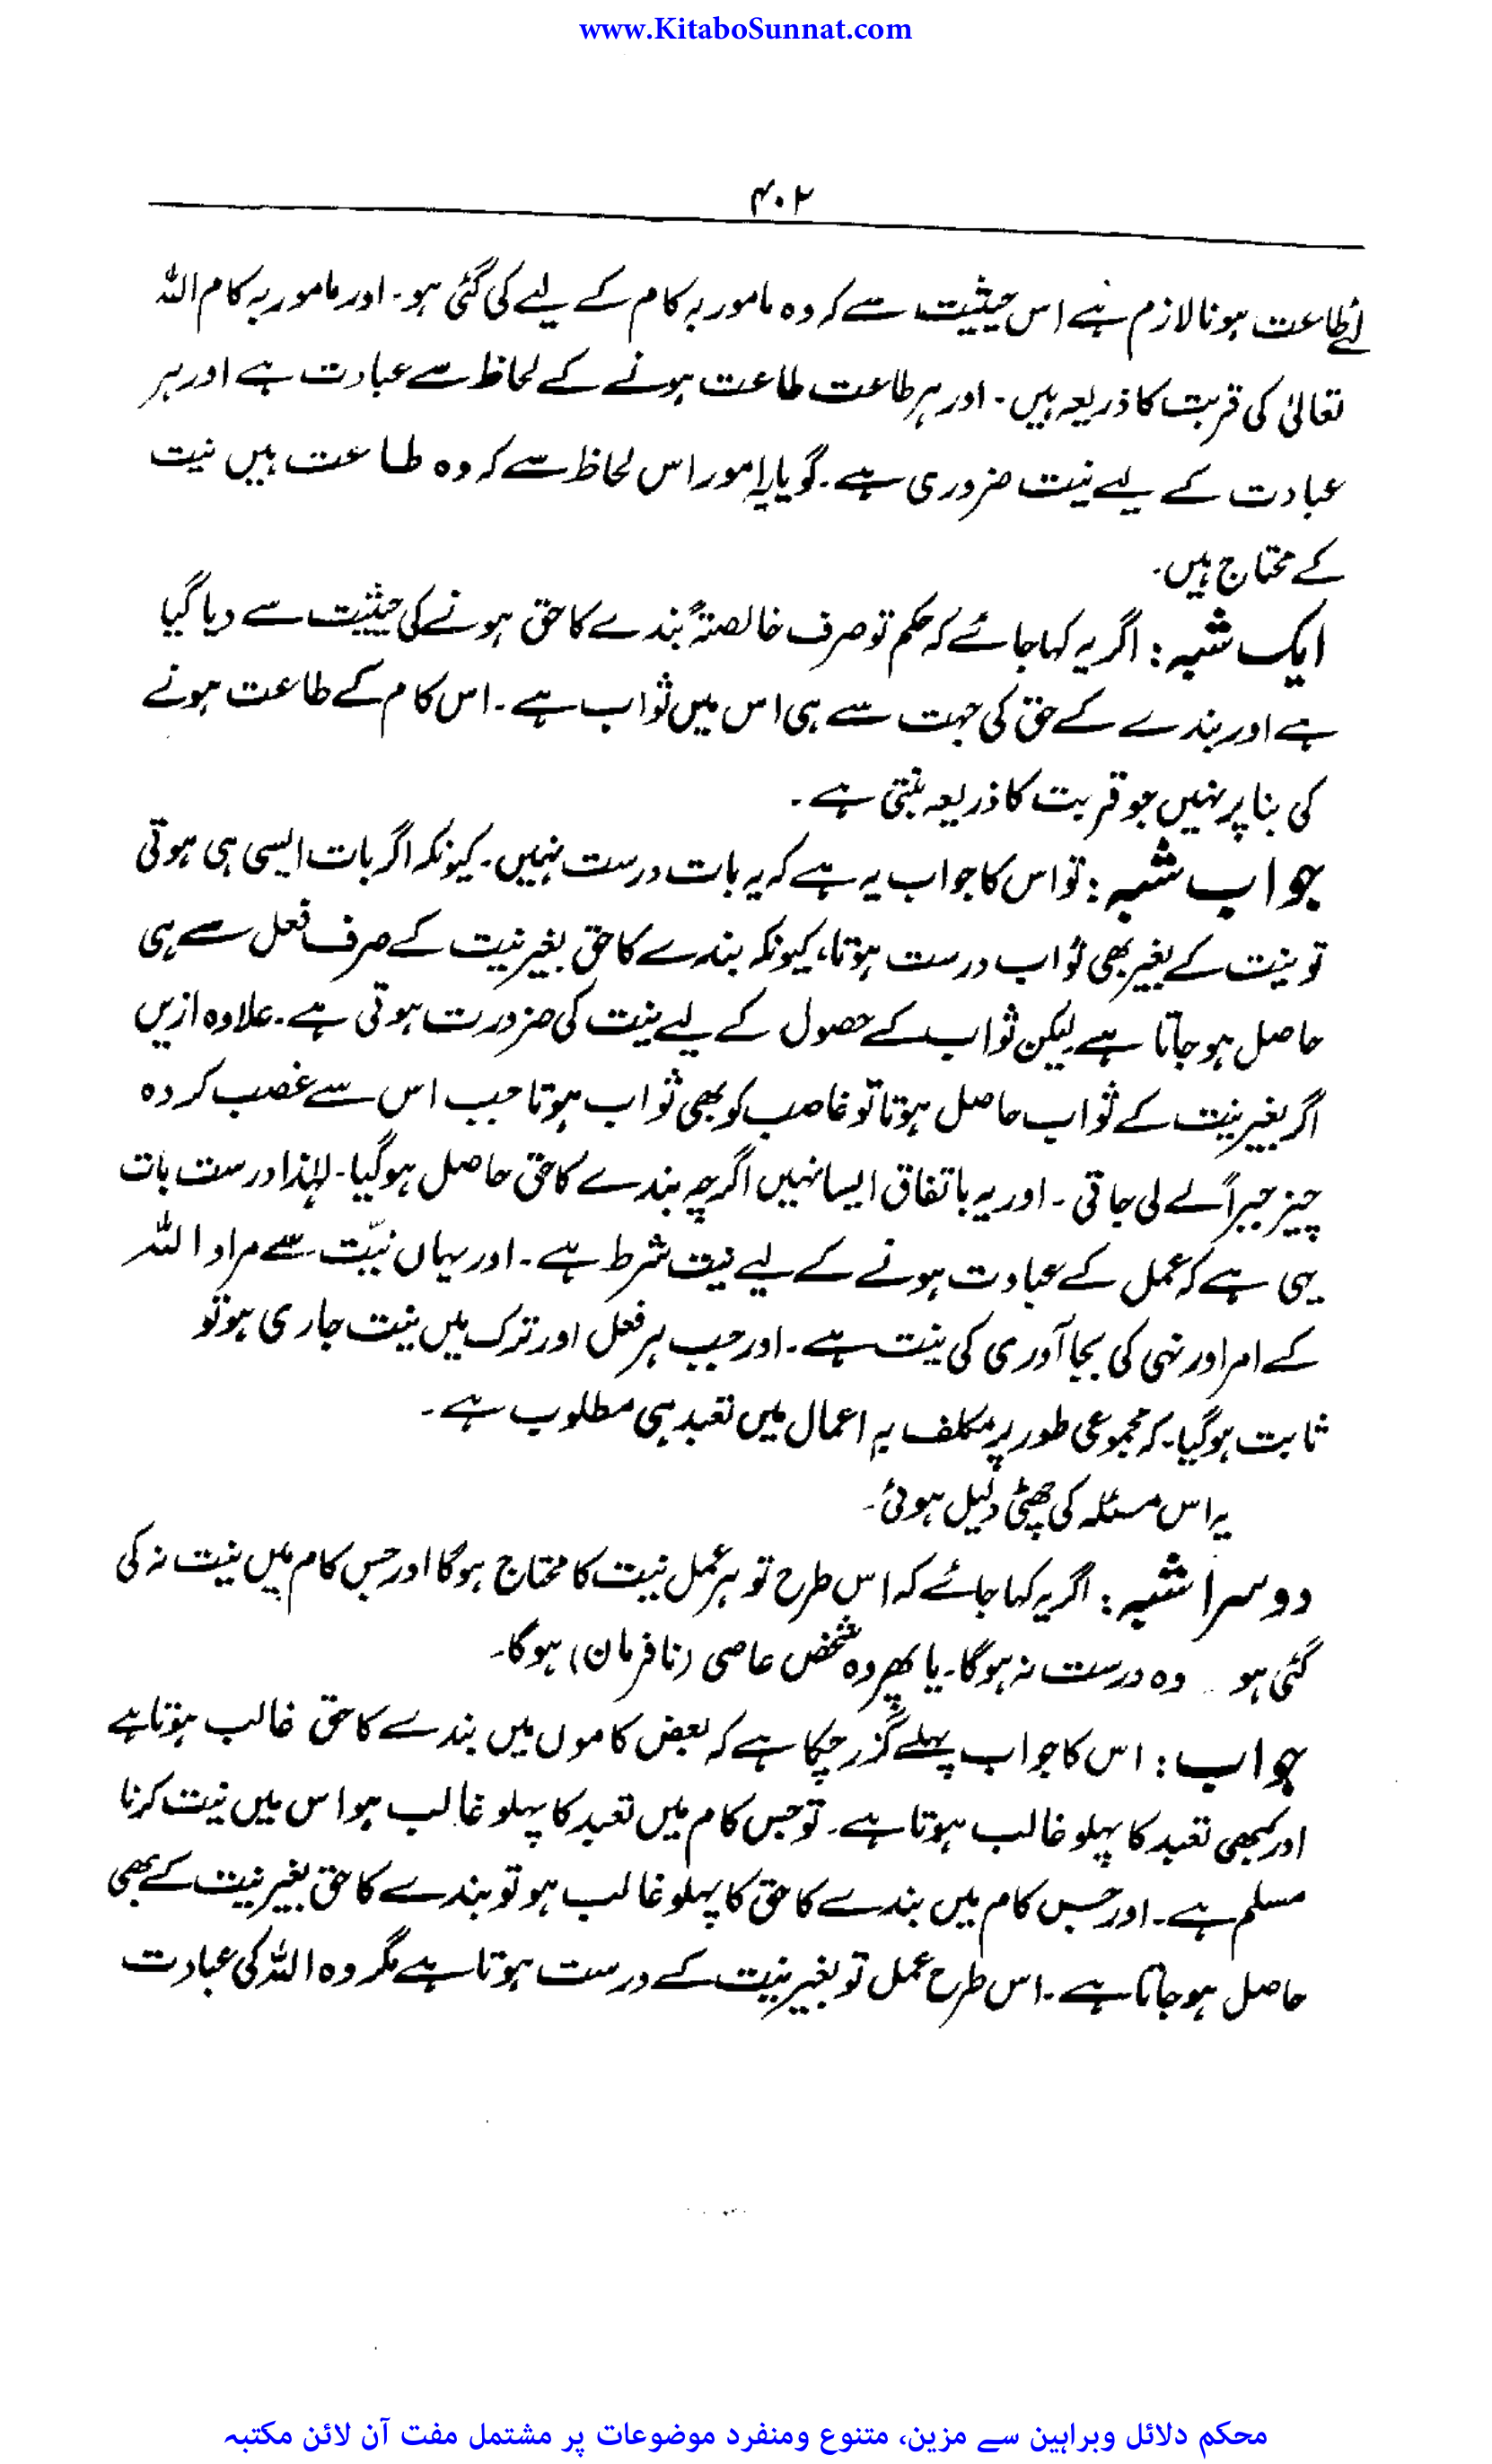 www.KitaboSunnat.com
۴۰۲
لئے طاعت ہونا لازم ہے اس حیثیت سے کہ وہ مامور بہ کام کے لیے کی گئی ہو۔ اور مامور بہ کام اللہ
تعالیٰ کی قربت کا ذریعہ ہیں۔ اور ہر طاعت طاعت ہونے کے لحاظ سے عبادت ہے اور ہر
عبادت کے لیے نیت ضروری ہے۔ گویا یہ امور اس لحاظ سے کہ وہ طاعت ہیں نیت
کے محتاج ہیں۔
ایک شبہ: اگر یہ کہا جائے کہ حکم تو صرف خالصتہً بندے کا حق ہونے کی حیثیت سے دیا گیا
ہے اور بندے کے حق کی جہت سے ہی اس میں ثواب ہے۔ اس کام کے طاعت ہونے
کی بنا پر نہیں جو قربت کا ذریعہ بنتی ہے۔
جواب شبہ: تو اس کا جواب یہ ہے کہ یہ بات درست نہیں۔ کیونکہ اگر بات ایسی ہی ہوتی
تو نیت کے بغیر بھی ثواب درست ہوتا، کیونکہ بندے کا حق بغیر نیت کے صرف فعل سے ہی
حاصل ہو جاتا ہے لیکن ثواب کے حصول کے لیے نیت کی ضرورت ہوتی ہے۔ علاوہ ازیں
اگر بغیر نیت کے ثواب حاصل ہوتا تو غاصب کو بھی ثواب ہوتا جب اس سے غصب کردہ
چیز جبراً لے لی جاتی۔ اور یہ باتفاق ایسا نہیں اگرچہ بندے کا حق حاصل ہو گیا۔ لہٰذا درست بات
یہی ہے کہ عمل کے عبادت ہونے کے لیے نیت شرط ہے۔ اور یہاں نیّت سے مراد اللہ
کے امر اور نہی کی بجا آوری کی نیت ہے۔ اور جب ہر فعل اور ترک میں نیت جاری ہو تو
ثابت ہو گیا۔ کہ مجموعی طور پر مکلف بہ اعمال میں تعبد ہی مطلوب ہے۔
یہ اس مسئلہ کی چھٹی دلیل ہوئی۔
دوسرا شبہ: اگر یہ کہا جائے کہ اس طرح تو ہر عمل نیت کا محتاج ہوگا اور جس کام میں نیت نہ کی
گئی ہو وہ درست نہ ہوگا۔ یا پھر وہ شخص عاصی (نافرمان) ہوگا۔
جواب: اس کا جواب پہلے گزر چکا ہے کہ بعض کاموں میں بندے کا حق غالب ہوتا ہے
اور کبھی تعبد کا پہلو غالب ہوتا ہے۔ تو جس کام میں تعبد کا پہلو غالب ہو اس میں نیت کرنا
مسلم ہے۔ اور جس کام میں بندے کا حق کا پہلو غالب ہو تو بندے کا حق بغیر نیت کے بھی
حاصل ہو جاتا ہے۔ اس طرح عمل تو بغیر نیت کے درست ہوتا ہے مگر وہ اللہ کی عبادت
محکم دلائل وبراہین سے مزین، متنوع ومنفرد موضوعات پر مشتمل مفت آن لائن مکتبہ